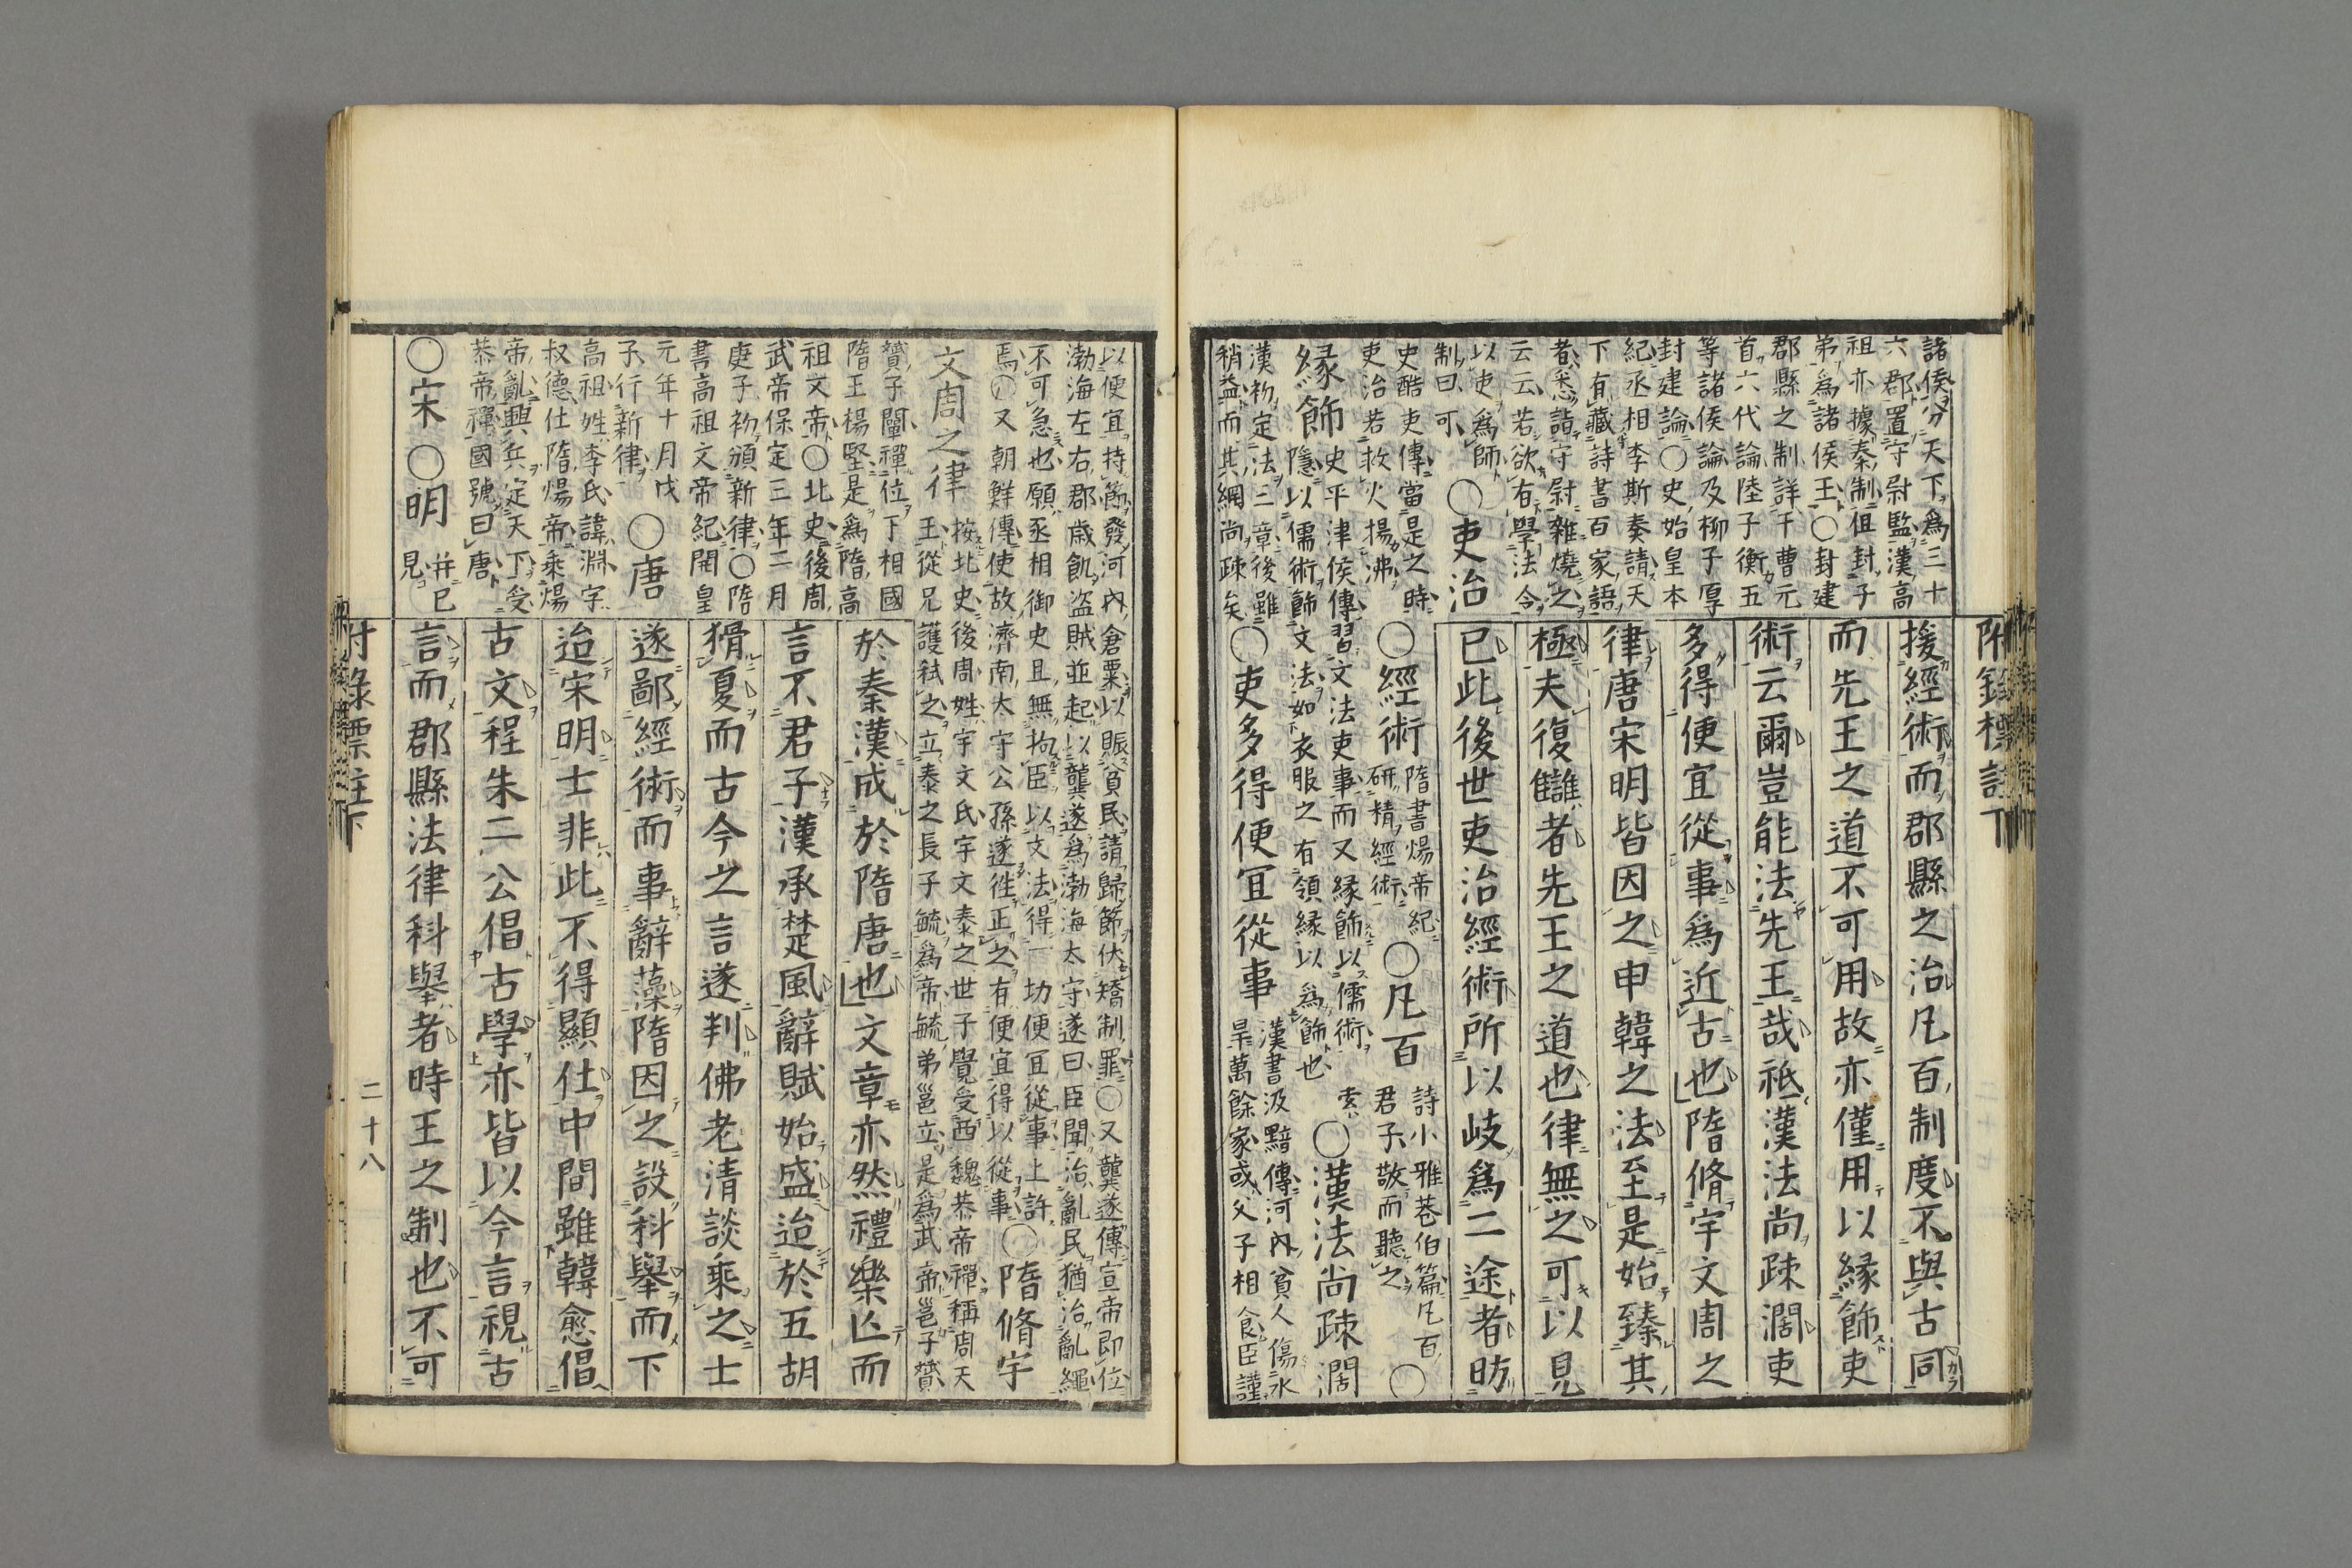 附錄標註下
諸侯分天下爲三十
六郡置守尉監漢高
祖亦據秦制但封子
弟爲諸侯王〇封建
郡縣之制詳于曹元
首六代論陸子衡五
等諸侯論及柳子厚
封建論〇史始皇本
紀丞相李斯奏請天
下有藏詩書百家語
者悉詣守尉雜燒之
云云若欲有學法令
以吏爲師〇吏治
制曰可
史酷吏傳當是之時
吏治若救火揚沸
〇經術
隋書煬帝紀
研精經術
〇凡百
詩小雅巷伯篇凡百
君子敬而聽之
〇
緣飾
史平津侯傳習文法吏事而又緣飾以儒術
索
隱以儒術飾文法如衣服之有領緣以爲飾也
〇漢法尚疎濶
漢初定法三章後雖
稍益而其綱尚疎矣
〇吏多得便宜從事
漢書汲黯傳河內貧人傷水
旱萬餘家或父子相食臣謹
援經術而郡縣之治凡百制度不與古同
而先王之道不可用故亦僅用以緣飾吏
術云爾豈能法先王哉祇漢法尚疎濶吏
多得便宜從事爲近古也隋脩宇文周之
律唐宋明皆因之申韓之法至是始臻其
極夫復讎者先王之道也律無之可以見
已此後世吏治經術所以岐爲二途者昉
以便宜持節發河內倉粟以賑貧民請歸節伏矯制罪〇又龔遂傳宣帝即位
渤海左右郡歲飢盜賊並起以龔遂爲渤海太守遂曰臣聞治亂民猶治亂繩
不可急也願丞相御史且無拘臣以文法得一切便宜從事上許
焉〇又朝鮮傳使故濟南太守公孫遂徃正之有便宜得以從事
〇隋脩宇
文周之律
按北史後周姓宇文氏宇文泰之世子覺受西魏恭帝禪稱周天
王從兄護弑之立泰之長子毓爲帝毓弟邕立是爲武帝邕子贇
贇子闡禪位下相國
隋王楊堅是爲隋高
祖文帝〇北史後周
武帝保定三年二月
庚子初頒新律〇隋
書高祖文帝紀開皇
元年十月戊
子行新律
〇唐
高祖姓李氏諱淵字
叔德仕隋煬帝乘煬
帝亂興兵定天下受
恭帝禪國號曰唐
〇宋〇明
并已
見
於秦漢成於隋唐也文章亦然禮樂亾而
言不君子漢承楚風辭賦始盛迨於五胡
猾夏而古今之言遂判佛老清談乘之士
遂鄙經術而事辭藻隋因之設科舉而下
迨宋明士非此不得顯仕中間雖韓愈倡
古文程朱二公倡古學亦皆以今言視古
言而郡縣法律科舉者時王之制也不可
付錄票註下
二十八